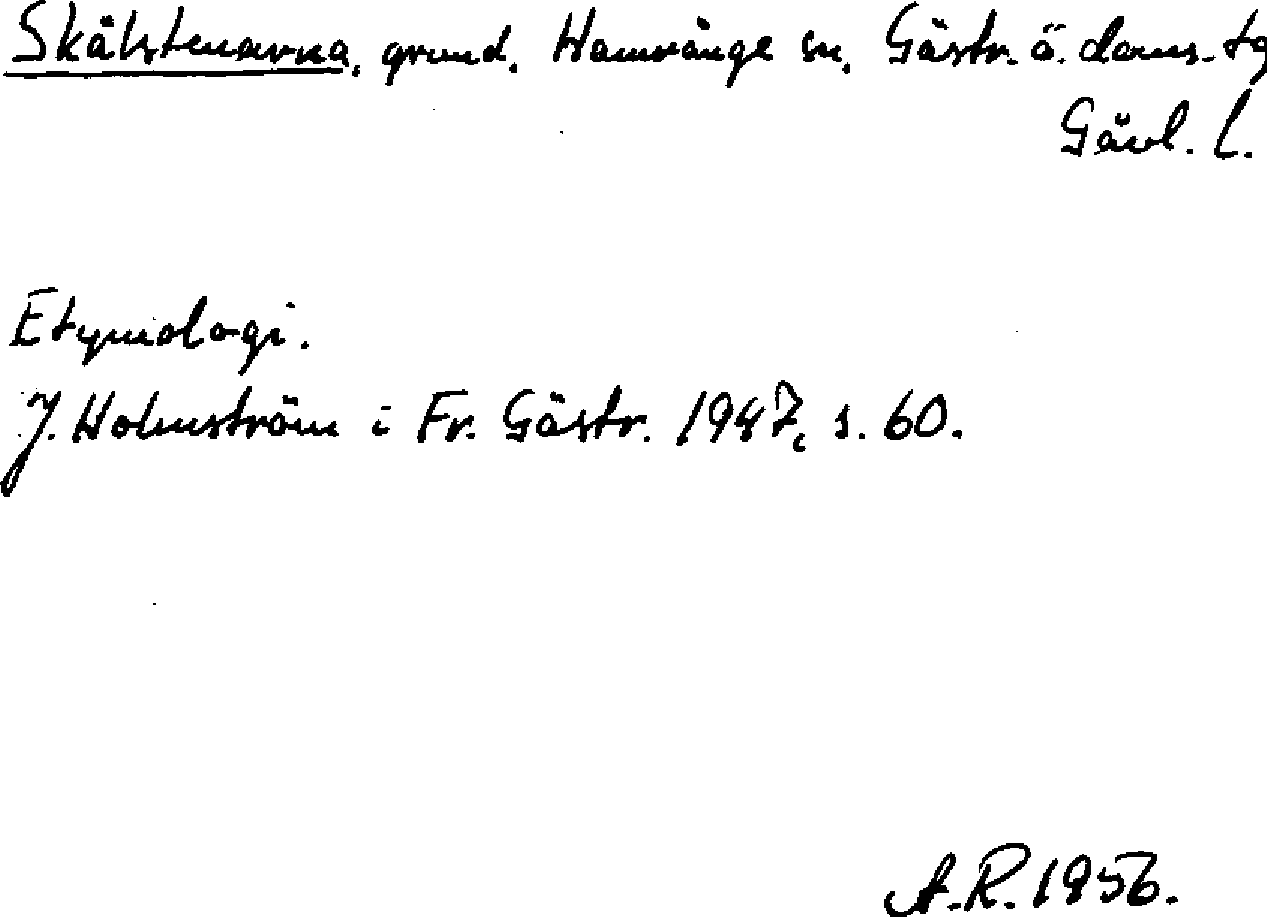 Skälstenarna, grund, Hamrånge sn, Gästr. ö. doms. tg
Gävl. l.
Etymologi.
J. Holmström i Fr. Gästr. 1947, s. 60.
A.R. 1956.